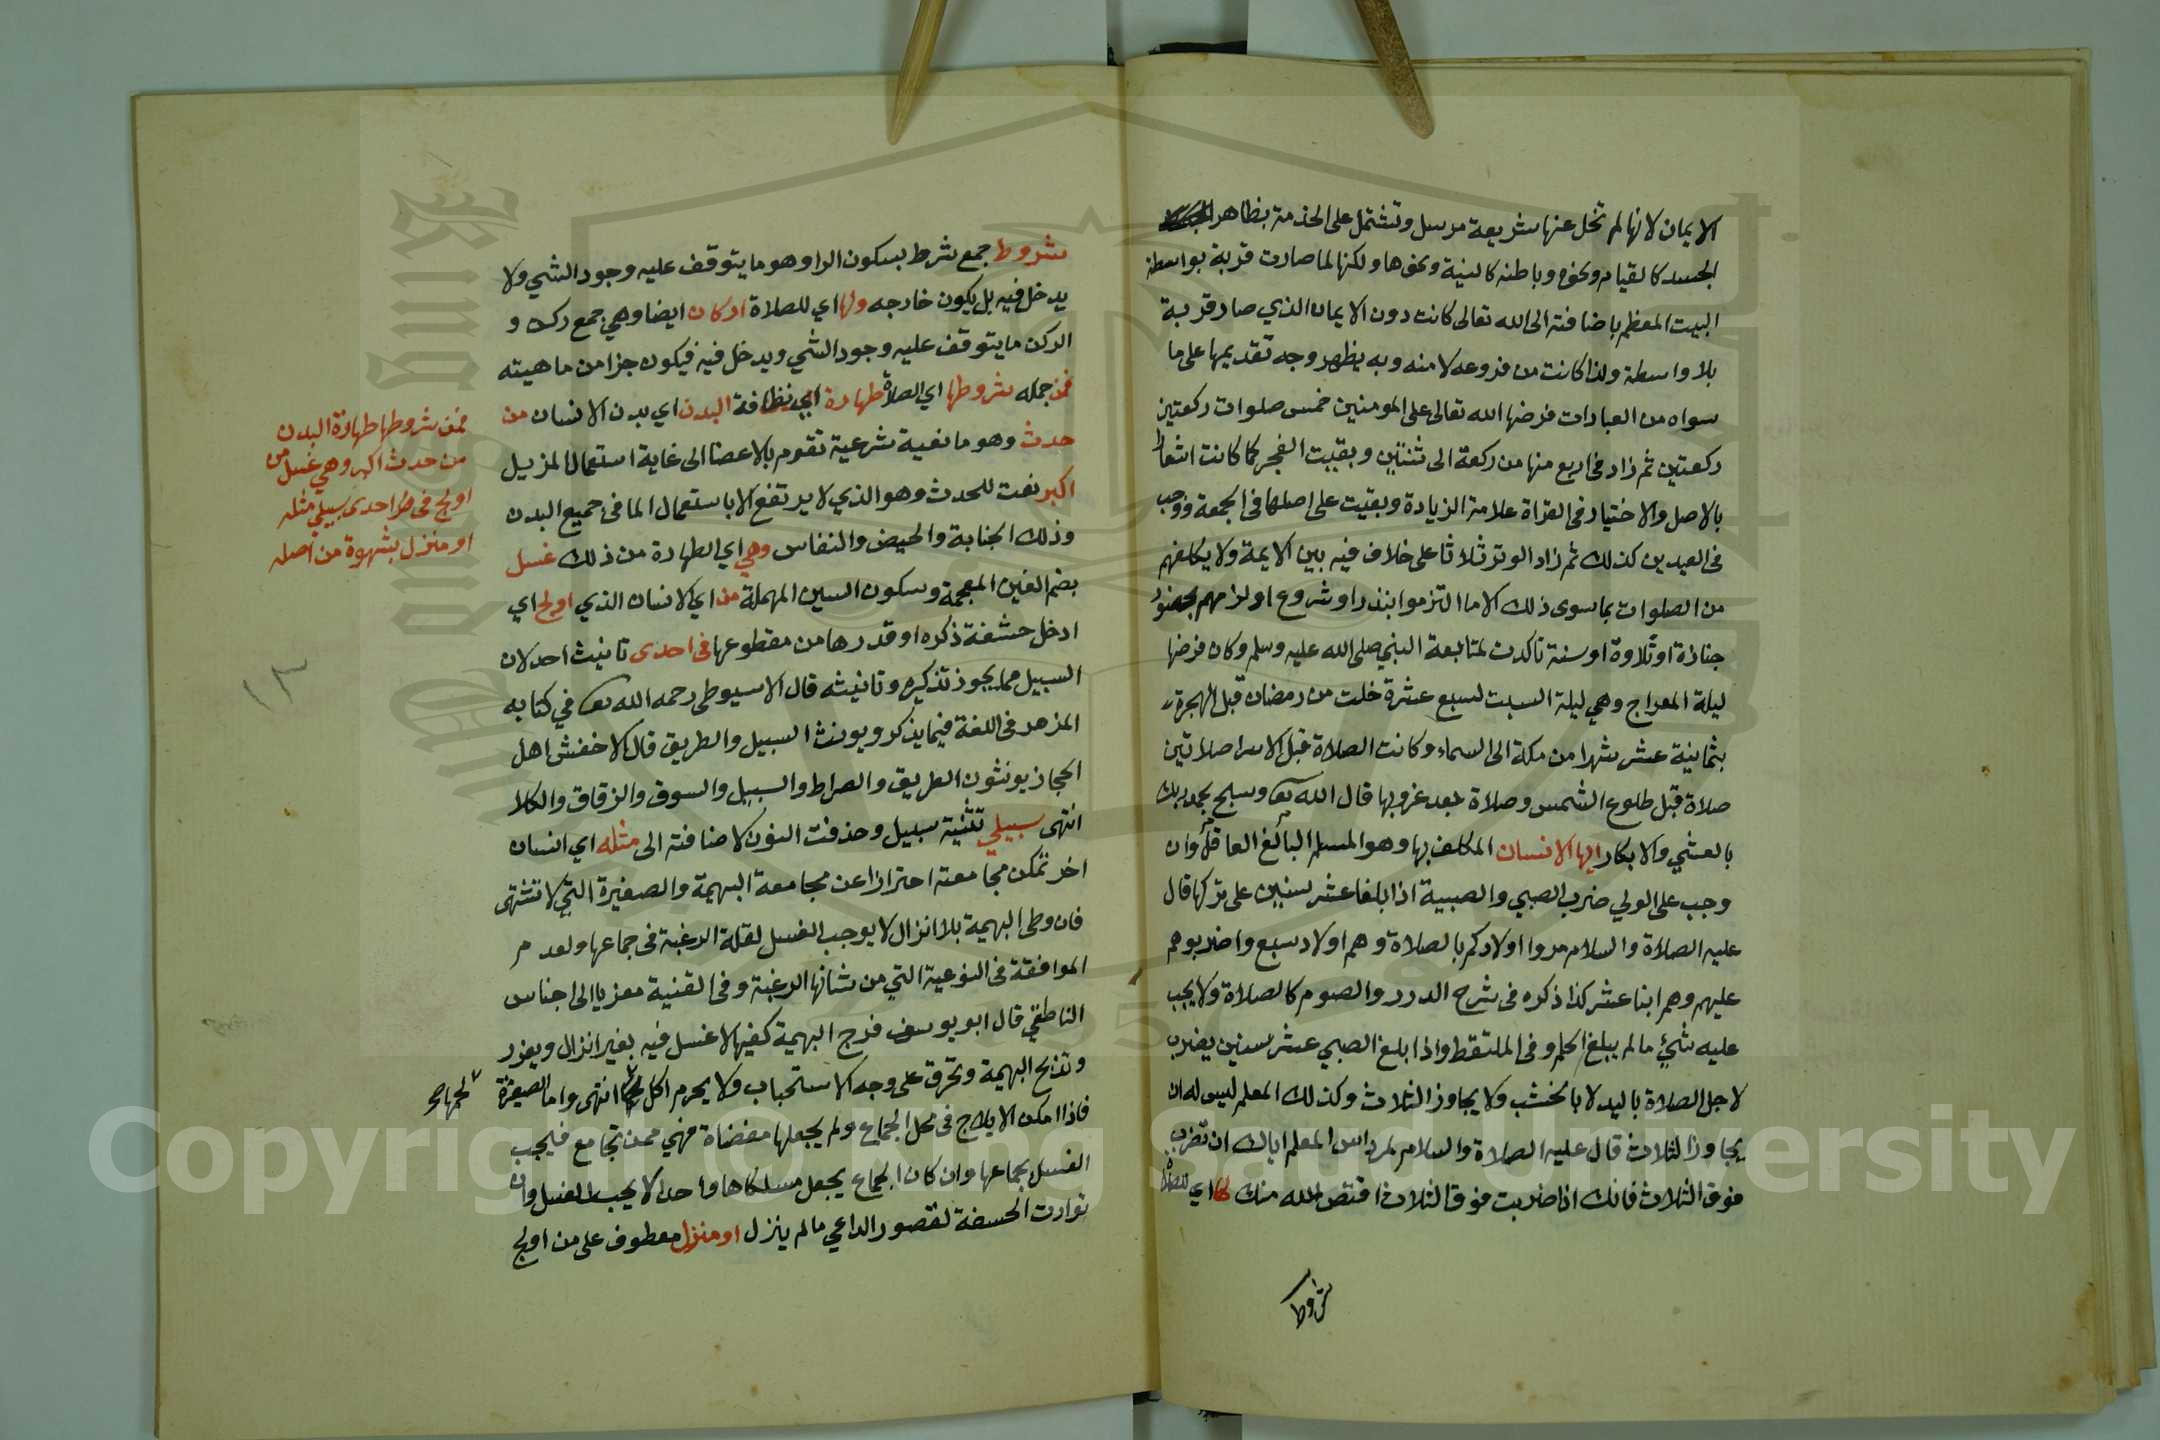 الايمان لانها لم تخل عنها شريعة مرسل وتشتمل على الخدمة بظاهر
الجسد كالقيام ونحوه وباطنه كالنية ونحوها ولكنها لما صارت قربة بواسطة
البيت المعظم باضافته الى الله تعالى كانت دون الايمان الذي صار قربة
بلا واسطة ولذا كانت من فروعه لا منه وبه يظهر وجه تقديمها على ما
سواه من العبادات فرضها الله تعالى على المومنين خمس صلوات ركعتين
ركعتين ثم زاد في اربع منها من ركعة الى ثنتين وبقيت الفجر كما كانت اشعارا
بالاصل والاختيار في القراة علامة الزيادة وبقيت على اصلها في الجمعة ووجب
في العيدين كذلك ثم زاد الوتر ثلاثا على خلاف فيه بين الايمة ولا يكلفهم
من الصلوات بما سوى ذلك الا ما التزموا بنذر او شروع او لزمهم بحضور
جنازة او تلاوة او سنة تاكدت لمتابعة النبي صلى الله عليه وسلم وكان فرضها
ليلة المعراج وهي ليلة السبت لسبع عشرة خلت من رمضان قبل الهجرة
بثمانية عشر شهرا من مكة الى السماء وكانت الصلاة قبل الاسرا صلاتين
صلاة قبل طلوع الشمس وصلاة بعد غروبها قال الله تعا وسبح بحمد ربك
بالعشي والابكار ايها الانسان المكلف بها وهو المسلم البالغ العاقل وان
وجب على الولي ضرب الصبي والصبية اذا بلغا عشر سنين على تركها قال
عليه الصلاة والسلام مروا اولادكم بالصلاة وهم اولاد سبع واضربوهم
عليهم وهم ابنا عشر كذا ذكره في شرح الدرر والصوم كالصلاة ولا يجب
عليه شيء ما لم يبلغ الحلم وفي الملتقط واذا بلغ الصبي عشر سنين يضرب
لاجل الصلاة باليد لا بالخشب ولا يجاوز الثلاث وكذلك المعلم ليس له ان
يجاوز الثلاث قال عليه الصلاة والسلام لمرداس المعلم اياك ان تضرب
فوق الثلاث فانك اذا ضربت فوق الثلاث اقتص الله منك لها اي للصلاة
شروط
شروط جمع شرط بسكون الرا وهو ما يتوقف عليه وجود الشي ولا
يدخل فيه بل يكون خارجه ولها اي للصلاة اركان ايضا وهي جمع ركن و
الركن ما يتوقف عليه وجود الشي ويدخل فيه فيكون جزا من ماهيته
فمن جمله شروطها اي الصلاة طهارة اي نظافة البدن اي بدن الانسان من
حدث وهو مانعية شرعية تقوم بالاعضا الى غاية استعمال المزيل
اكبر نعت للحدث وهو الذي لا يرتفع الا باستعمال الما في جميع البدن
وذلك الجنابة والحيض والنفاس وهي اي الطهارة من ذلك غسل
بضم الغين المعجمة وسكون السين المهملة من اي الانسان الذي اولج اي
ادخل حشفة ذكره او قدرها من مقطوعها في احدى تانيث احد لان
السبيل مما يجوز تذكيره وتانيثه قال الاسيوطي رحمه الله تعا في كتابه
المزهر في اللغة فيما يذكر ويونث السبيل والطريق قال الاخفش اهل
الحجاز يونثون الطريق والصراط والسبيل والسوق والزقاق والكلا
انتهى سبيلي تثنية سبيل وحذفت النون لاضافته الى مثله اي انسان
اخر تمكن مجامعته احترازا عن مجامعة البهيمة والصغيرة التي لا تشتهى
فان وطى البهيمة بلا انزال لا يوجب الغسل لقلة الرغبة في جماعها ولعدم
الموافقة في النوعية التي من شانها الرغبة وفي القنية معزيا الى اجناس
الناطفي قال ابو يوسف فرج البهيمة كفيها لا غسل فيه بغير انزال ويعزر
وتذبح البهيمة وتحرق على وجه الاستحباب ولا يحرم اكل لحمها انتهى واما الصغيرة
فاذا امكن الايلاج في محل الجماع ولم يجعلها مفضاة فهي ممن تجامع فيجب
الغسل بجماعها وان كان الجماع يجعل مسلكاها واحدا لا يجب الغسل وان
توارت الحشفة لقصور الداعي ما لم ينزل او منزل معطوف على من اولج
فمن شروطها طهارة البدن
من حدث اكبر وهي غسل من
اولج في احدى سبيلي مثله
او منزل بشهوة من اصله
١٣
لحمها صح
King Saud University
1957
Copyright © King Saud University